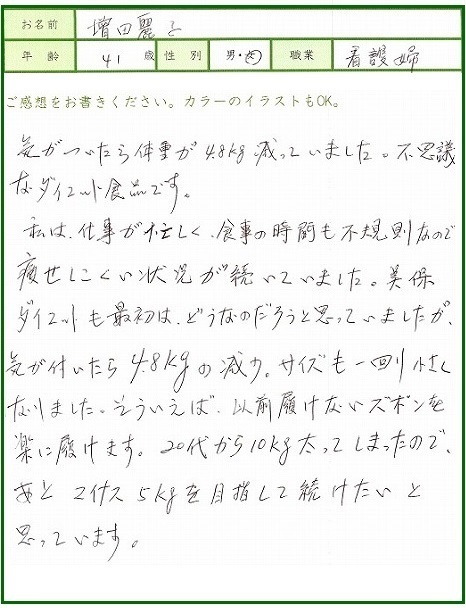 お名前 増田麗子
年齢 41歳 性別 男・女 職業 看護婦
ご感想をお書きください。カラーのイラストもOK。
気がついたら体重が4.8kg減っていました。不思議
なダイエット食品です。
私は、仕事が忙しく、食事の時間も不規則なので
痩せしにくい状況が続いていました。美保
ダイエットも最初は、どうなのだろうと思っていましたが、
気が付いたら4.8kgの減少。サイズも一回り小さく
なりました。そういえば、以前履けないズボンを
楽に履けます。20代から10kg太ってしまったので、
あとマイナス5kgを目指して続けたいと
思っています。